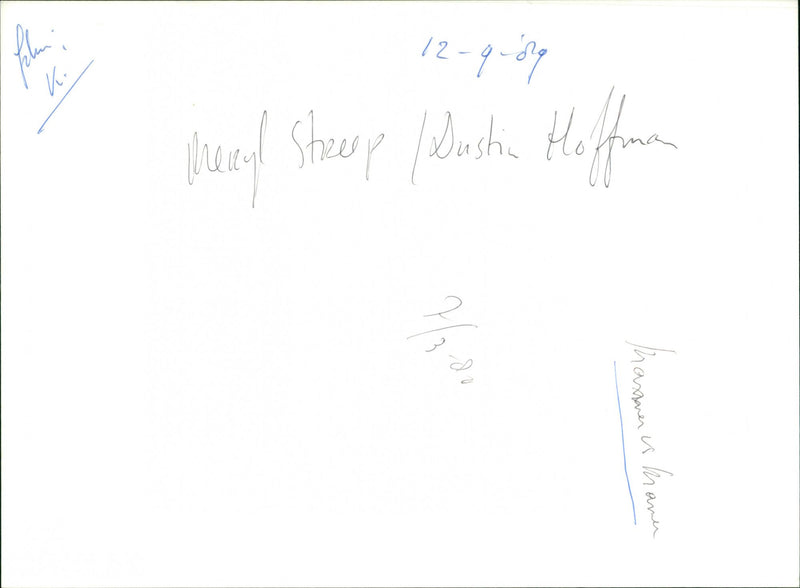 12-9-89
Meryl Streep / Dustin Hoffman
2/3-80
Krammer vs Kramer